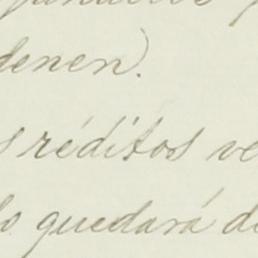 denen).
s réditos ve
lo quedará d